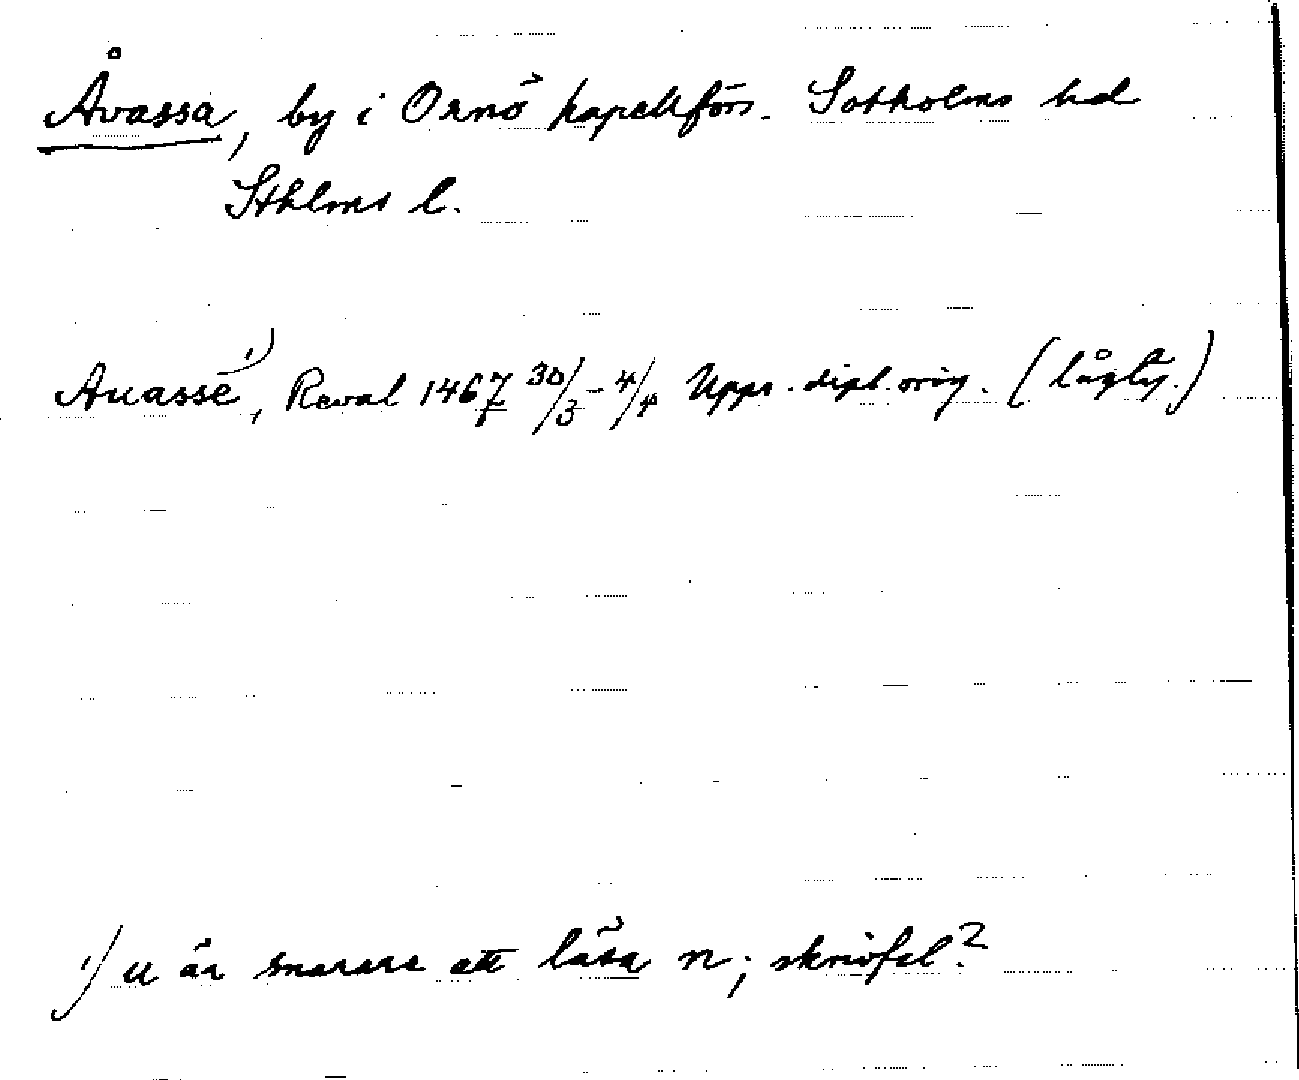 Åvassa, by i Ornö kapellförs. Sotholms hd
Sthlms l.
Auasse¹⁾, Reval 1467 30/3 - 4/4 Upps. dipl. orig. (lågty.)
¹⁾ u är snarare att läsa n; skrivfel?